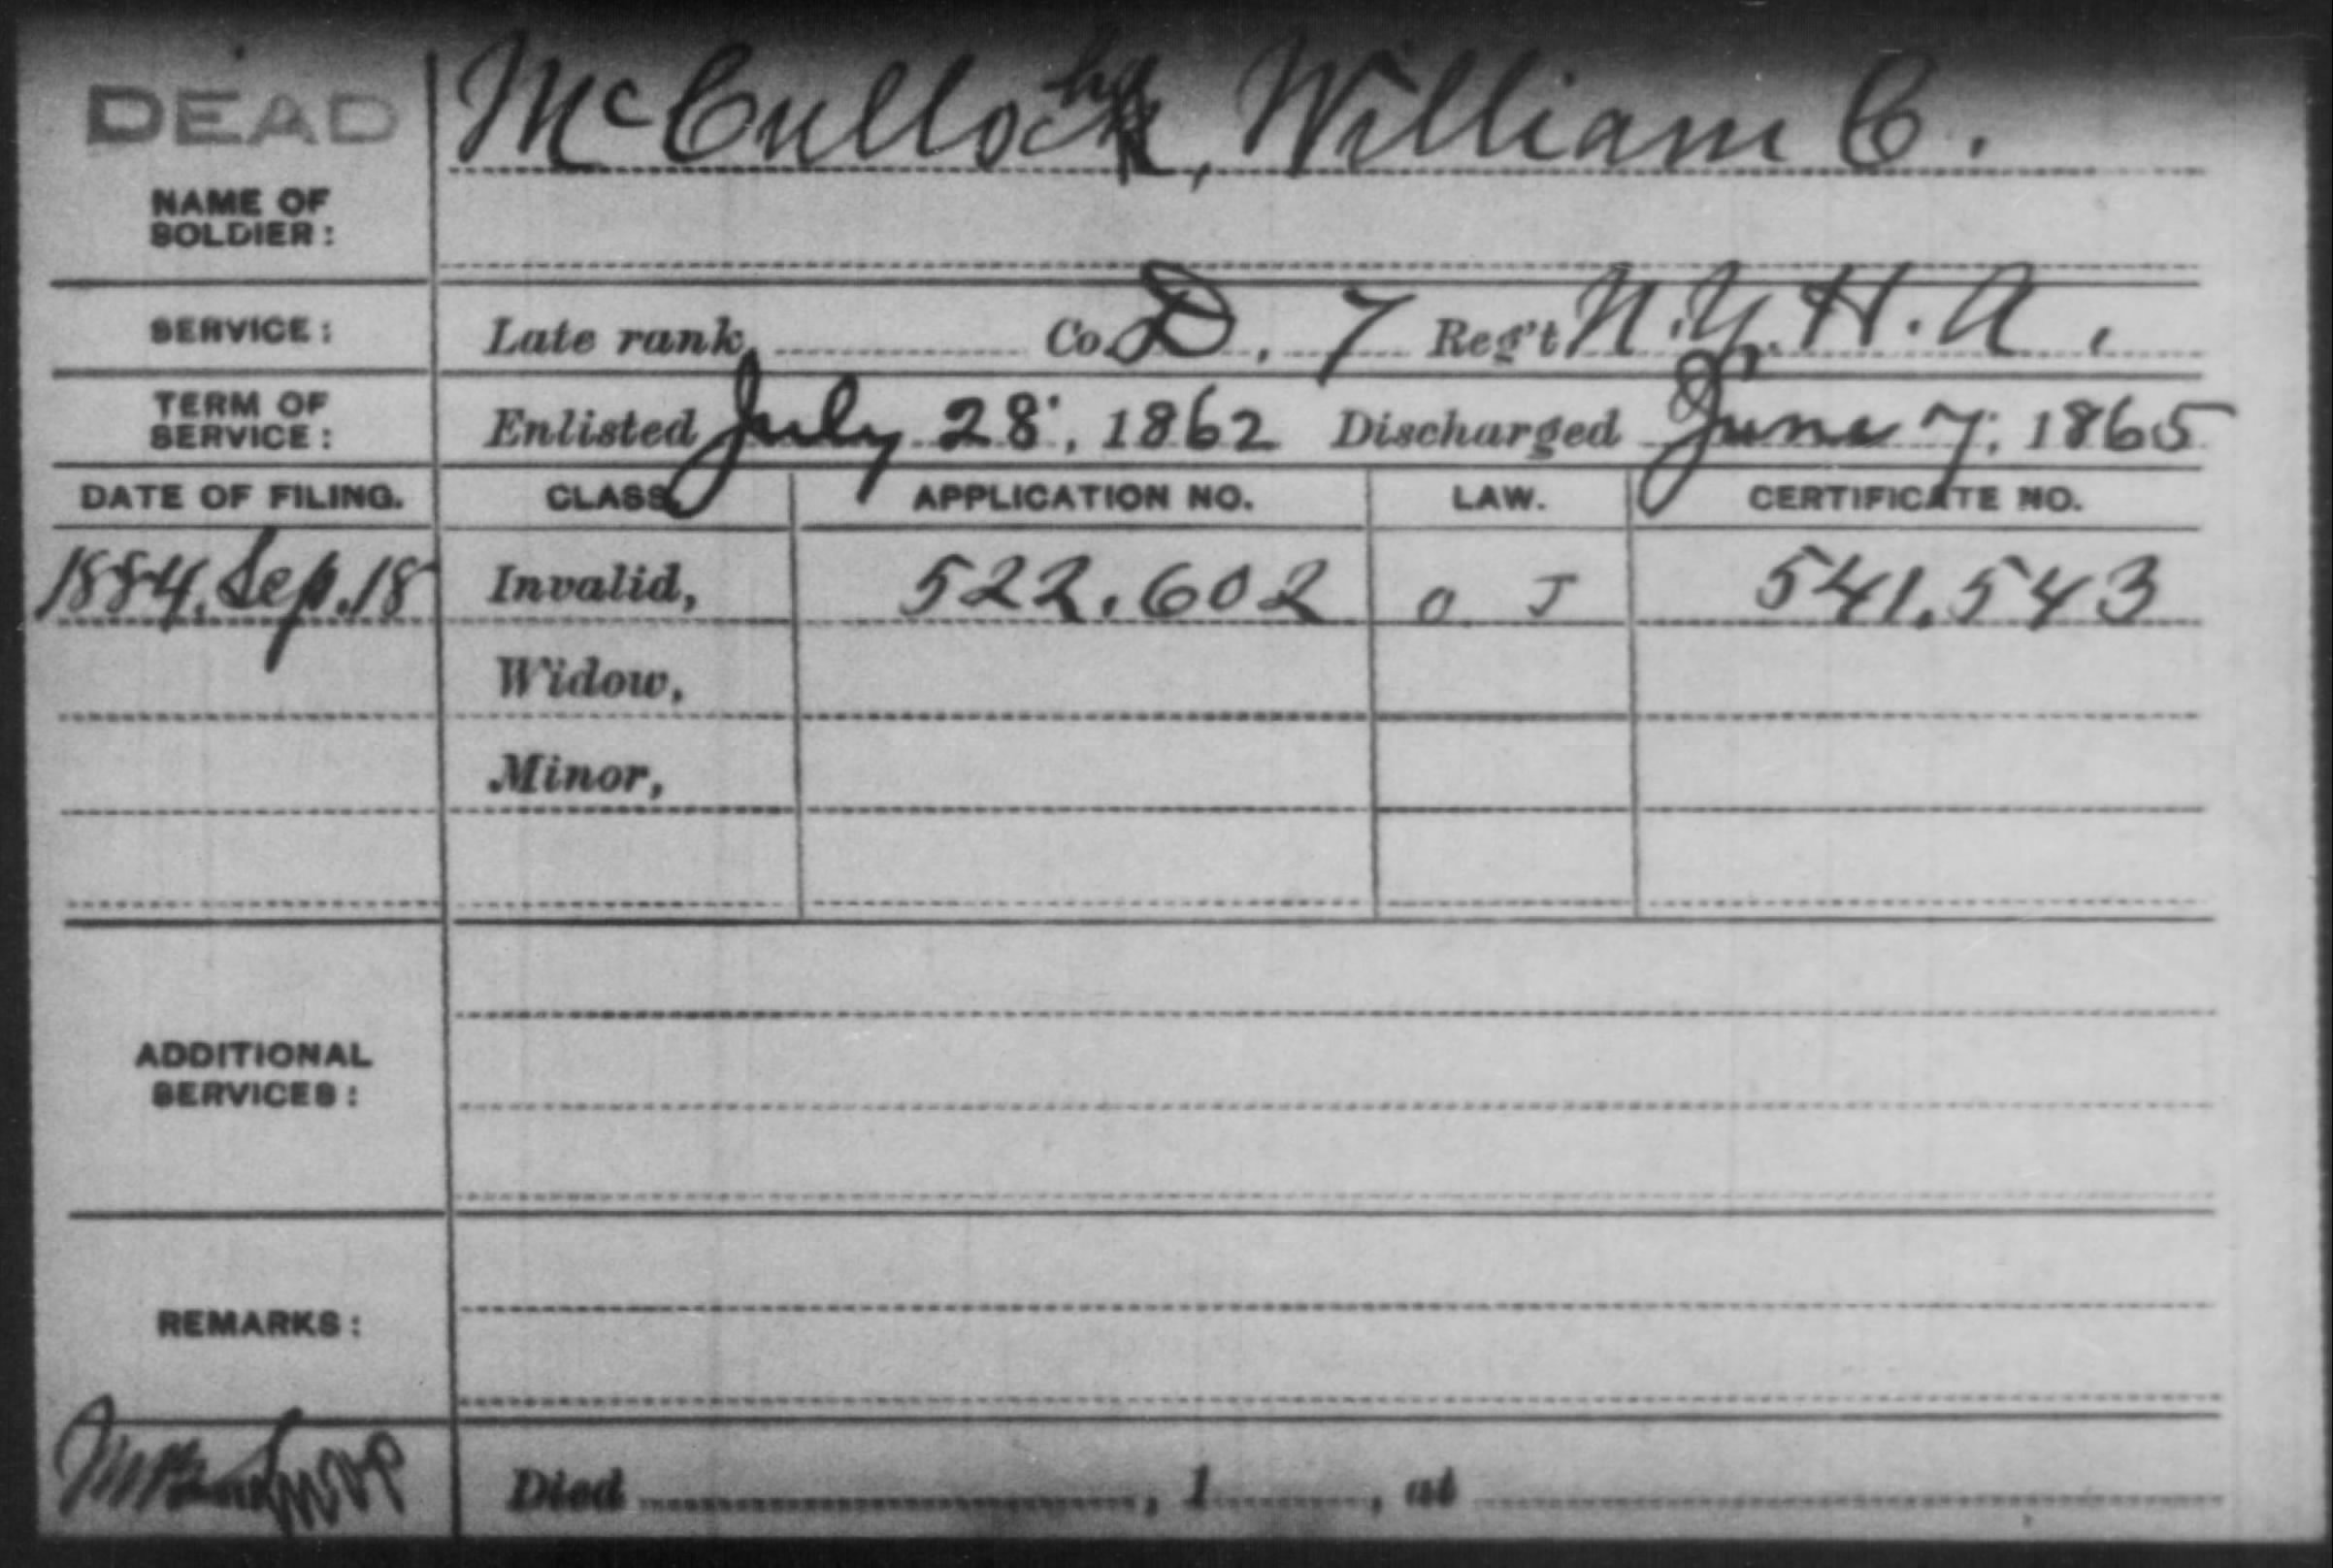 DEAD
McCullough, William C.
NAME OF
SOLDIER:
SERVICE: Late rank, Co. D, 7 Reg't N.Y. H. A.,
TERM OF
SERVICE: Enlisted July 28, 1862 Discharged June 7, 1865
DATE OF FILING. CLASS. APPLICATION NO. LAW. CERTIFICATE NO.
1884, Sep. 18 Invalid, 522.602 O J 541.543
Widow,
Minor,
ADDITIONAL
SERVICES:
REMARKS:
Died , 1 , at